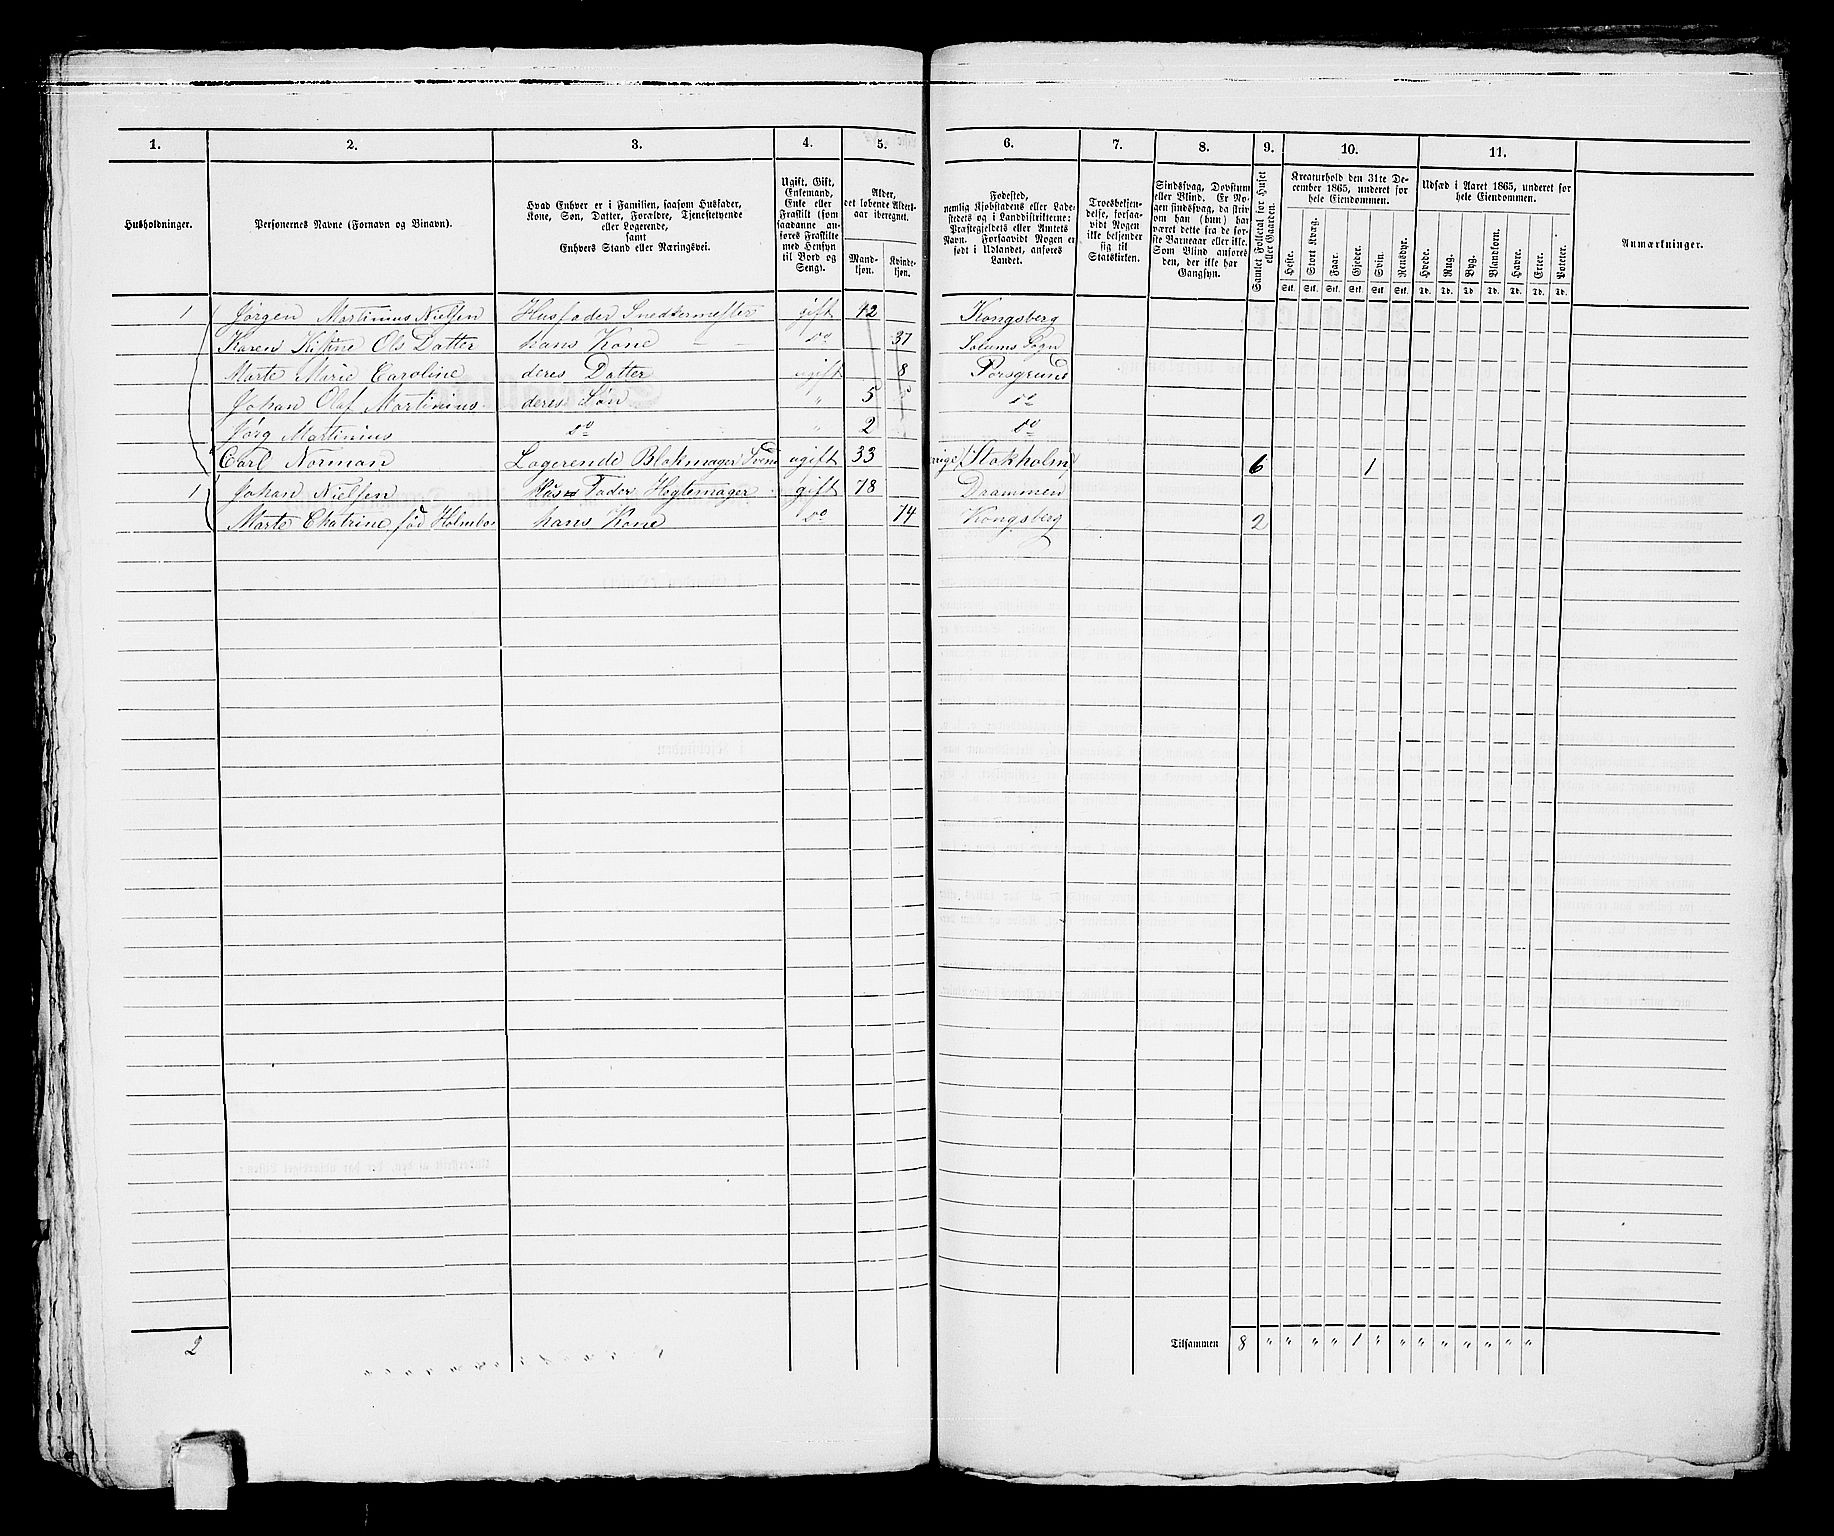 1. 2. 3. 4. 5. 6. 7. 8. 9. 10. 11.
Husholdninger.
Personernes Navne (Fornavn og Binavn).
Hvad Enhver er i Familien, saasom Husfader, Kone, Søn, Datter, Forældre, Tjenestetyende eller Logerende, samt Enhvers Stand eller Næringsvei.
Ugift, Gift, Enkemand, Enke eller Fraskilt (som saadanne anføres Fraskilte med Hensyn til Bord og Seng).
Alder, det løbende Alders-aar iberegnet.
Mand-kjøn. Kvinde-kjøn.
Fødested, nemlig Kjøbstadens eller Ladestedets og i Landdistrikterne: Præstegjeldets eller Amtets Navn. Forsaavidt Nogen er født i Udlandet, anføres Landet.
Troesbekjendelse, forsaavidt Nogen ikke bekjender sig til Statskirken.
Sindssvag, Døvstum eller Blind. Er Nogen sindssvag, da skrives om han (hun) har været dette fra de første Barneaar eller ikke. Som Blind anføres den, der ikke har Gangsyn.
Samlet Folketal for Huset eller Gaarden.
Kreaturhold den 31te December 1865, underet for hele Eiendommen.
Heste. Stort Kvæg. Faar. Gjeder. Svin. Rensdyr.
Stk. Stk. Stk. Stk. Stk. Stk.
Udsæd i Aaret 1865, underet for hele Eiendommen.
Hvede. Rug. Byg. Blandkorn. Havre. Erter. Poteter.
Td. Td. Td. Td. Td. Td. Td.
Anmærkninger.
1 Jørgen Martinius Nielsen Husfader Snedkermester gift 42 Kongsberg
Karen Kistine Ols Datter hans Kone do 37 Solums Sogn
Marte Marie Caroline deres Datter ugift 8 Porsgrund
Johan Olaf Martinius deres Søn " 5 do
Jørg Martinius do " 2 do
Carl Norman Logerende Blokmager Svend ugift 33 Stokholm 6 1
1 Johan Nielsen Huus Fader Hegtemager gift 78 Drammen
Marte Chatrine fød Holmbo hans Kone do 74 Kongsberg 2
2 Tilsammen 8 " " " " 1 " " " " " " " "